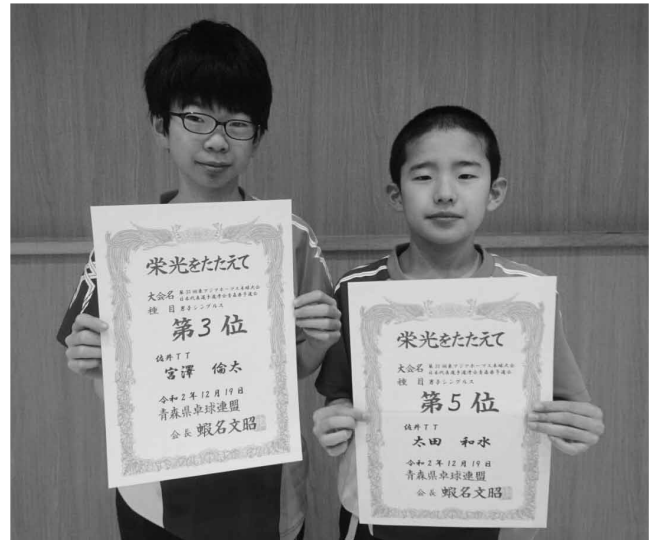 栄光をたたえて
大会名
種目 男子シングルス
第3位
佐井TT
宮澤 倫太
令和2年12月19日
青森県卓球連盟
会長 蝦名文昭
栄光をたたえて
大会名
種目 男子シングルス
第5位
佐井TT
太田 和水
令和2年12月19日
青森県卓球連盟
会長 蝦名文昭